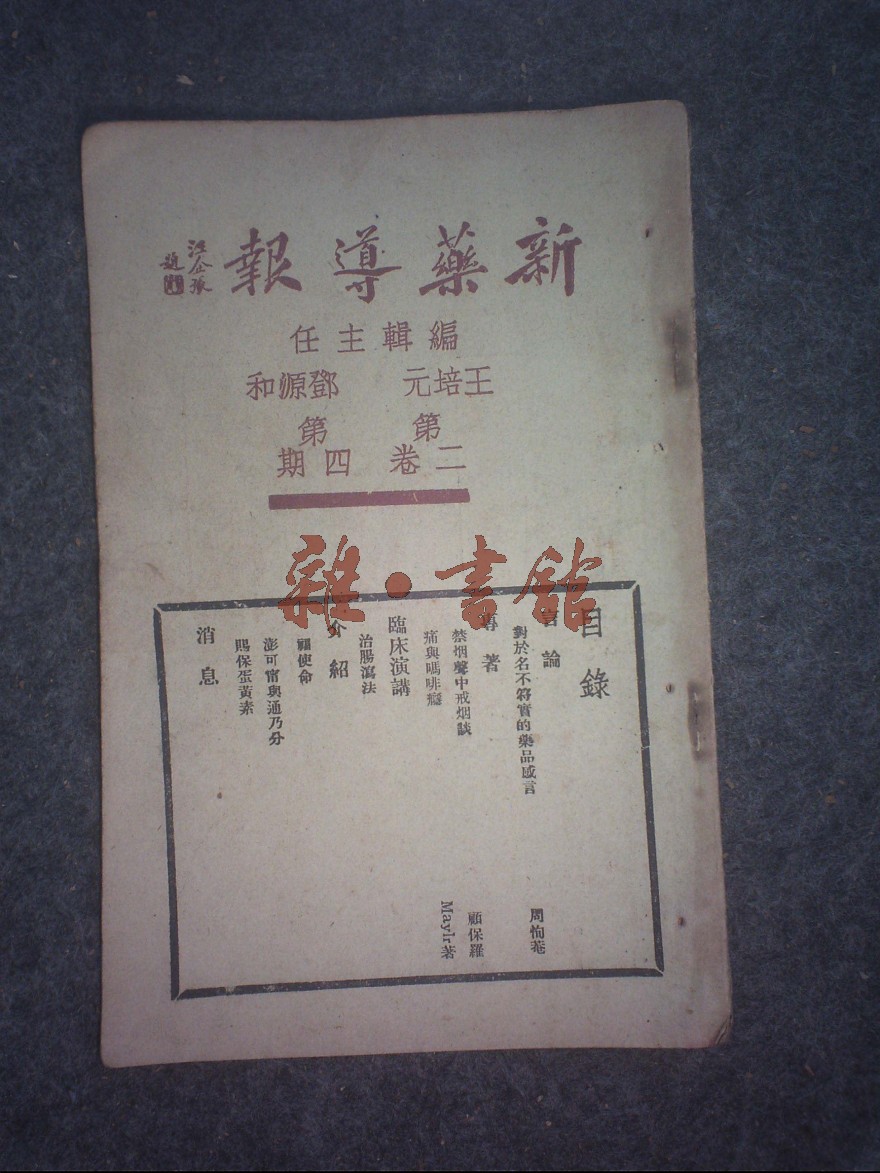 新藥導報
汪企張
題
編輯主任
王培元 鄧源和
第二卷 第四期
雜·書館
目錄
言論
對於名不符實的藥品感言 周恂菴
專著
禁烟聲中戒烟談 顧保羅
痛與嗎啡癮 Maylr著
臨床演講
治腸瀉法
介紹
福使命
澎可甯與通乃分
賜保蛋黃素
消息